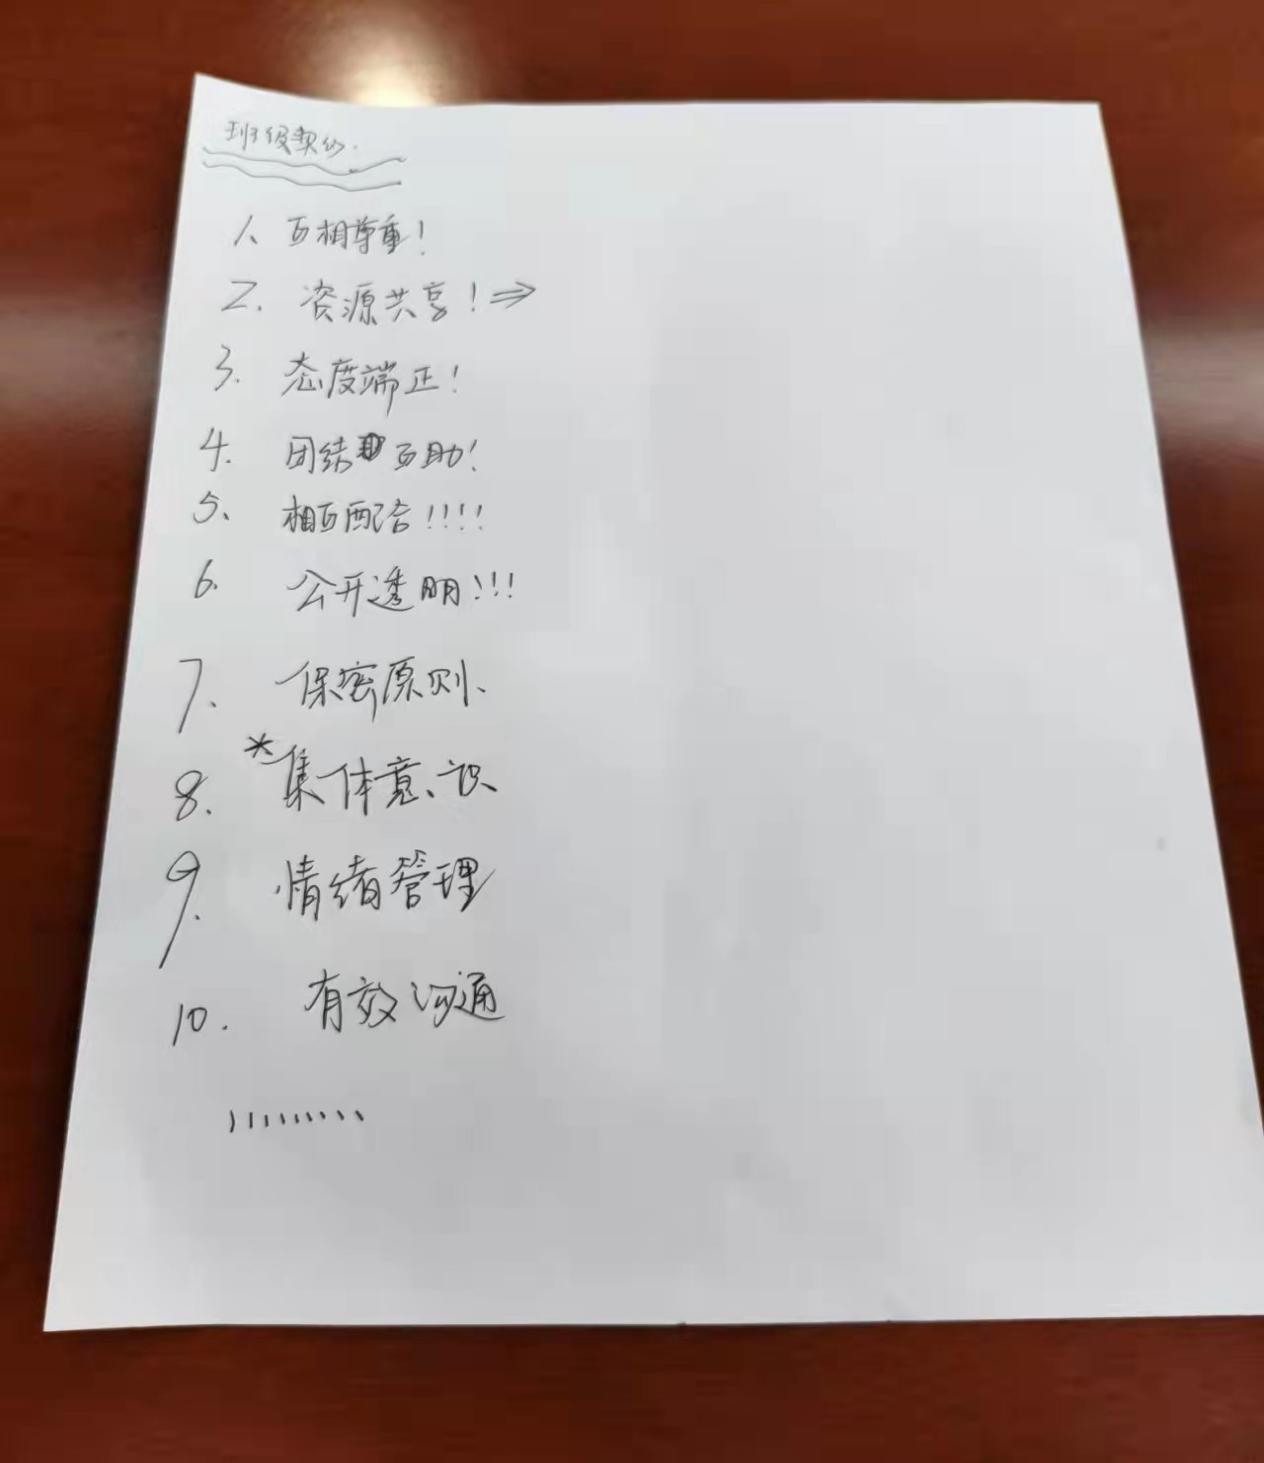 班级契约.
1、互相尊重！
2. 资源共享！⇒
3. 态度端正！
4. 团结互助！
5、相互配合！！！！
6. 公开透明！！！
7. 保密原则、
8. *集体意识
9. 情绪管理
10. 有效沟通